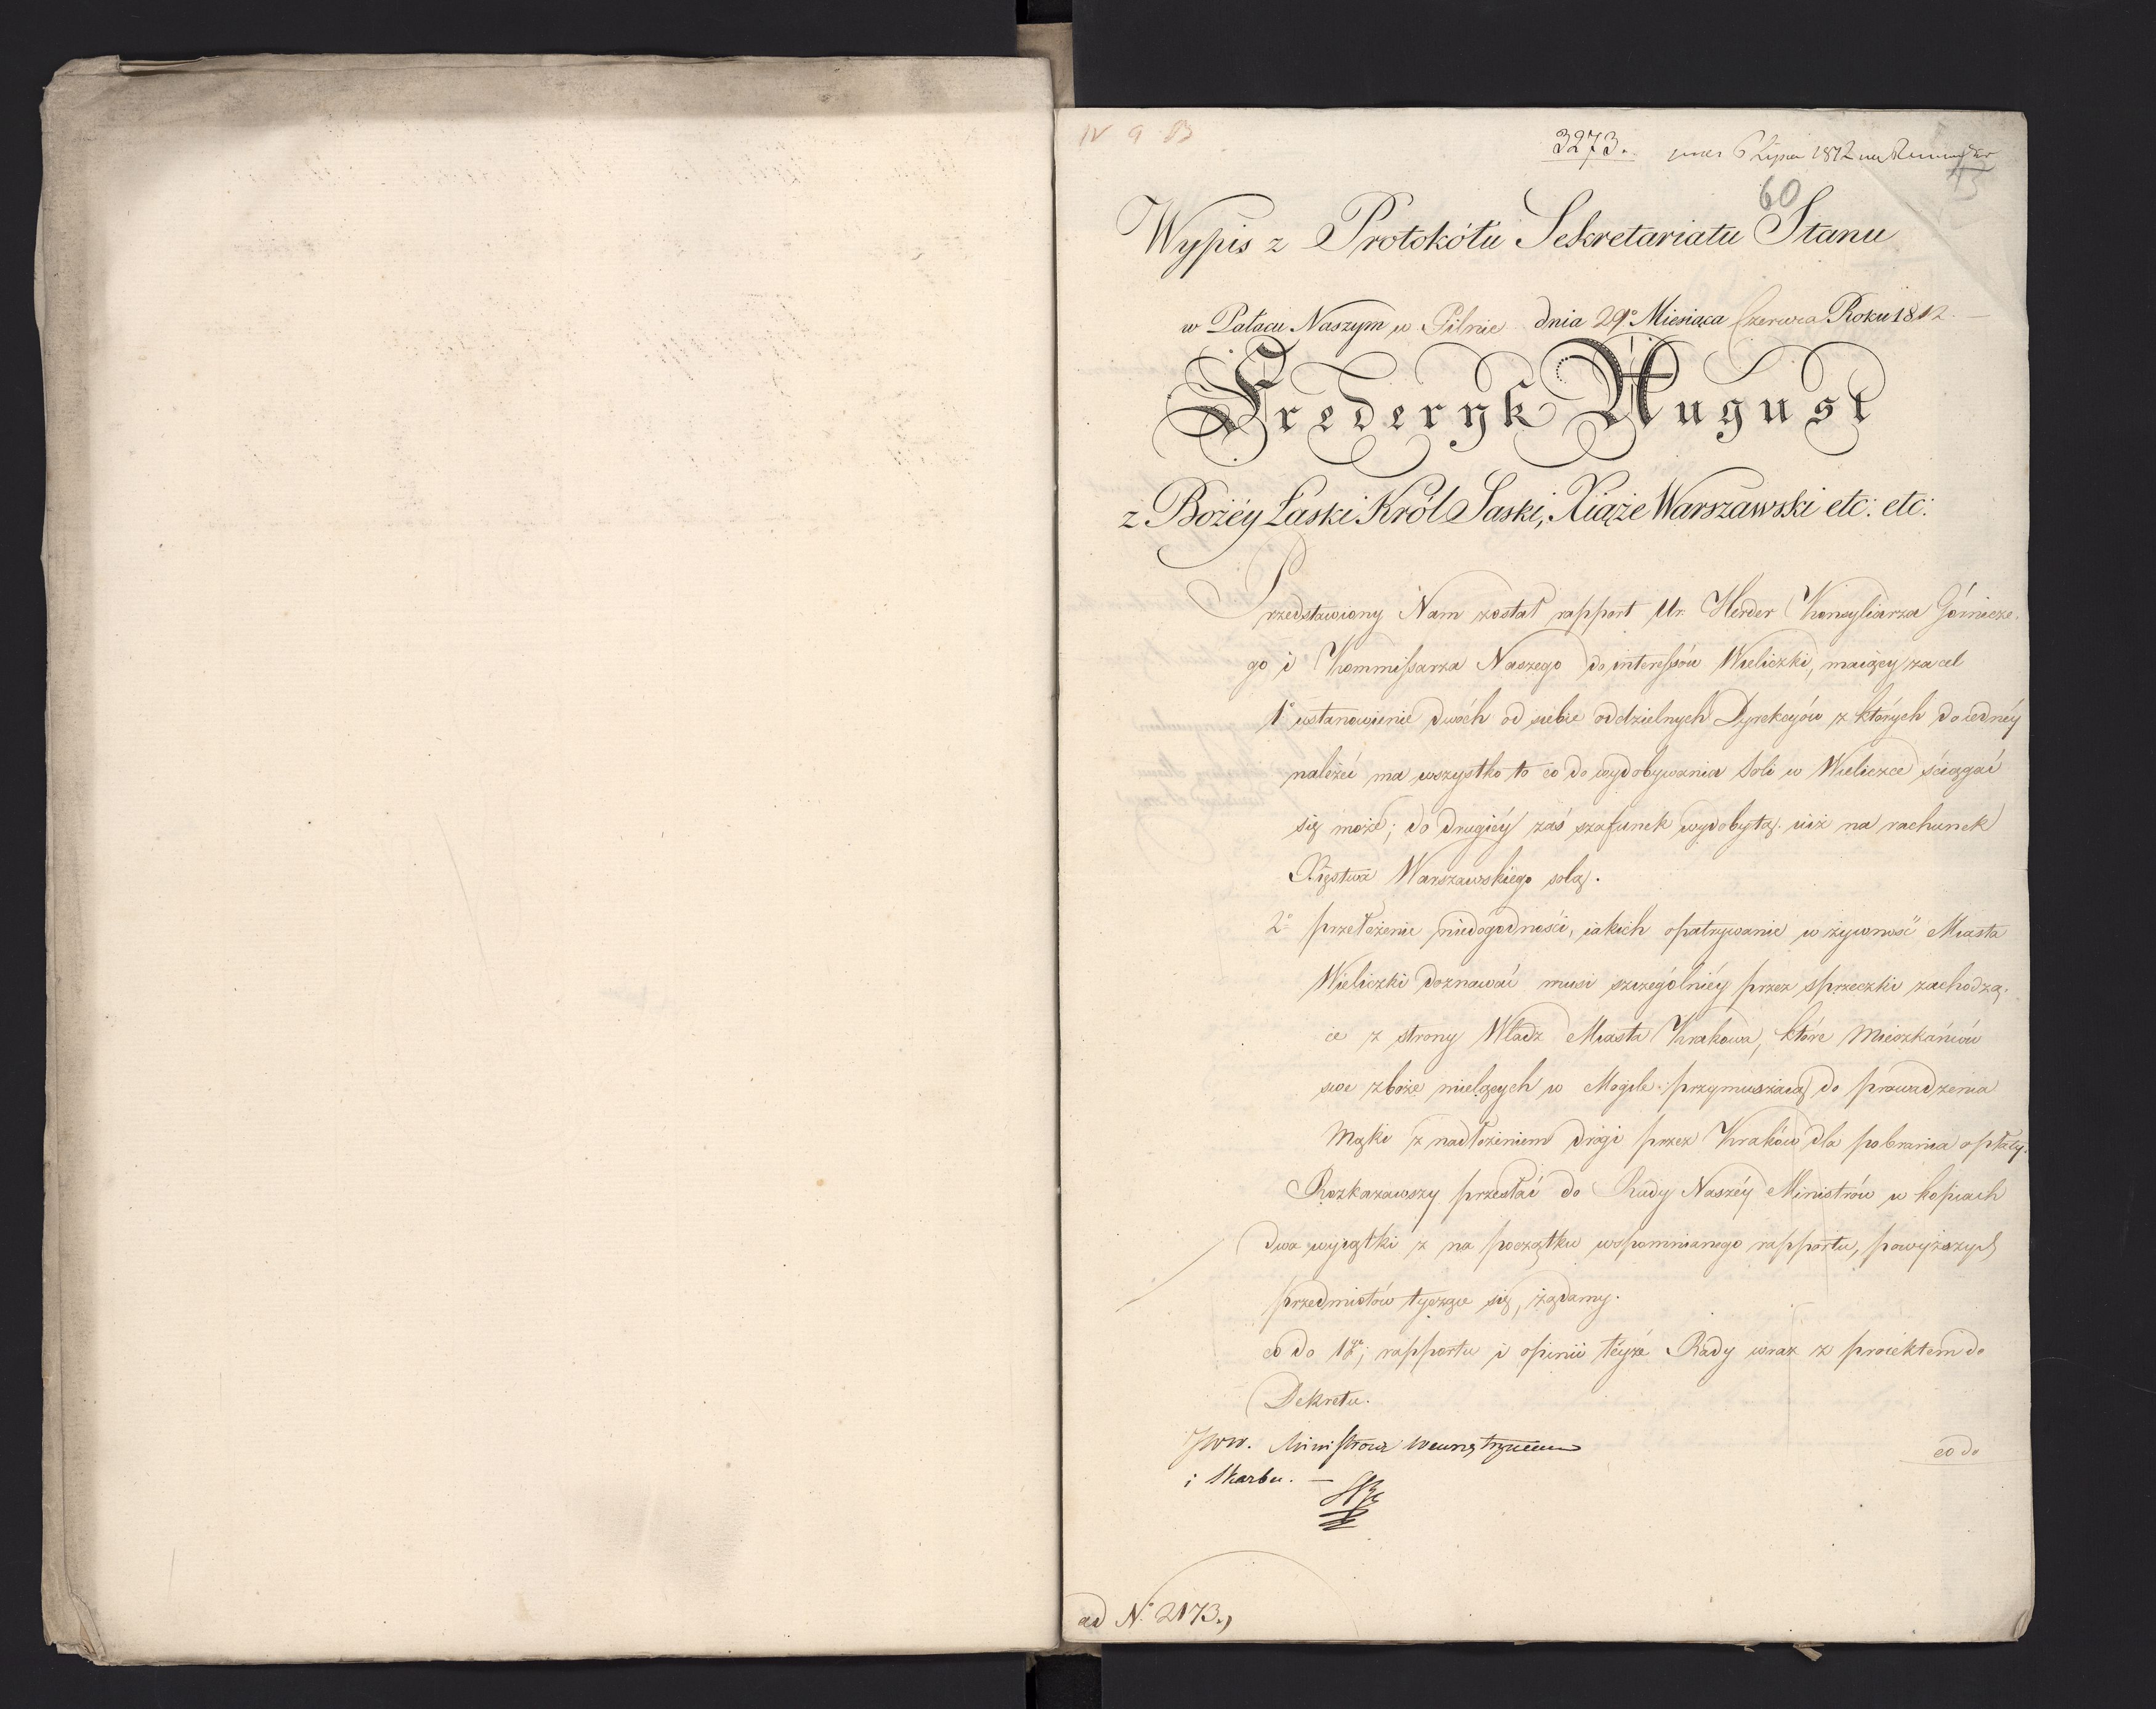 IV 9 83
3273. 6 Lipca 1812
60
Wypis z Protokółu Sekretariatu Stanu
w Pałacu Naszym w Pilnie dnia 29° Miesiąca Czerwca Roku 1812.
Frederyk August
z Bożéy Łaski Król Saski, Xiąże Warszawski etc: etc:
Przedstawiony Nam został rapport Ur. Herder Konsyliarza Górnicze-
go i Kommissarza Naszego do interessów Wieliczki, maiący za cel
1° ustanowienie dwóch od siebie oddzielnych Dyrekcyów z których do iednéy
należeć ma wszystko to co do wydobywania Soli w Wieliczce ściągać
się może; do drugiéy zaś szafunek wydobytą iuż na rachunek
Xięstwa Warszawskiego solą.
2° przełożenie niedogodności, iakich opatrywanie w żywność Miasta
Wieliczki doznawać musi szczególniéy przez sprzeczki zachodzą-
ce z strony Władz Miasta Krakowa, które Mieszkańców
swe zboże mielących w Mogile przymuszaią do prowadzenia
Mąki z nadłożeniem drogi przez Kraków dla pobrania opłaty.
Rozkazawszy przesłać do Rady Naszéy Ministrów w kopiach
dwa wyiątki z na początku wspomnianego rapportu, powyższych
przedmiotów tyczące się, żądamy.
co do 1go; rapportu i opinii téyże Rady wraz z proiektem do
Dekretu.
co do
JWW. Ministrowie Wewnętrznem
i Skarbu. —
ad N° 2173.